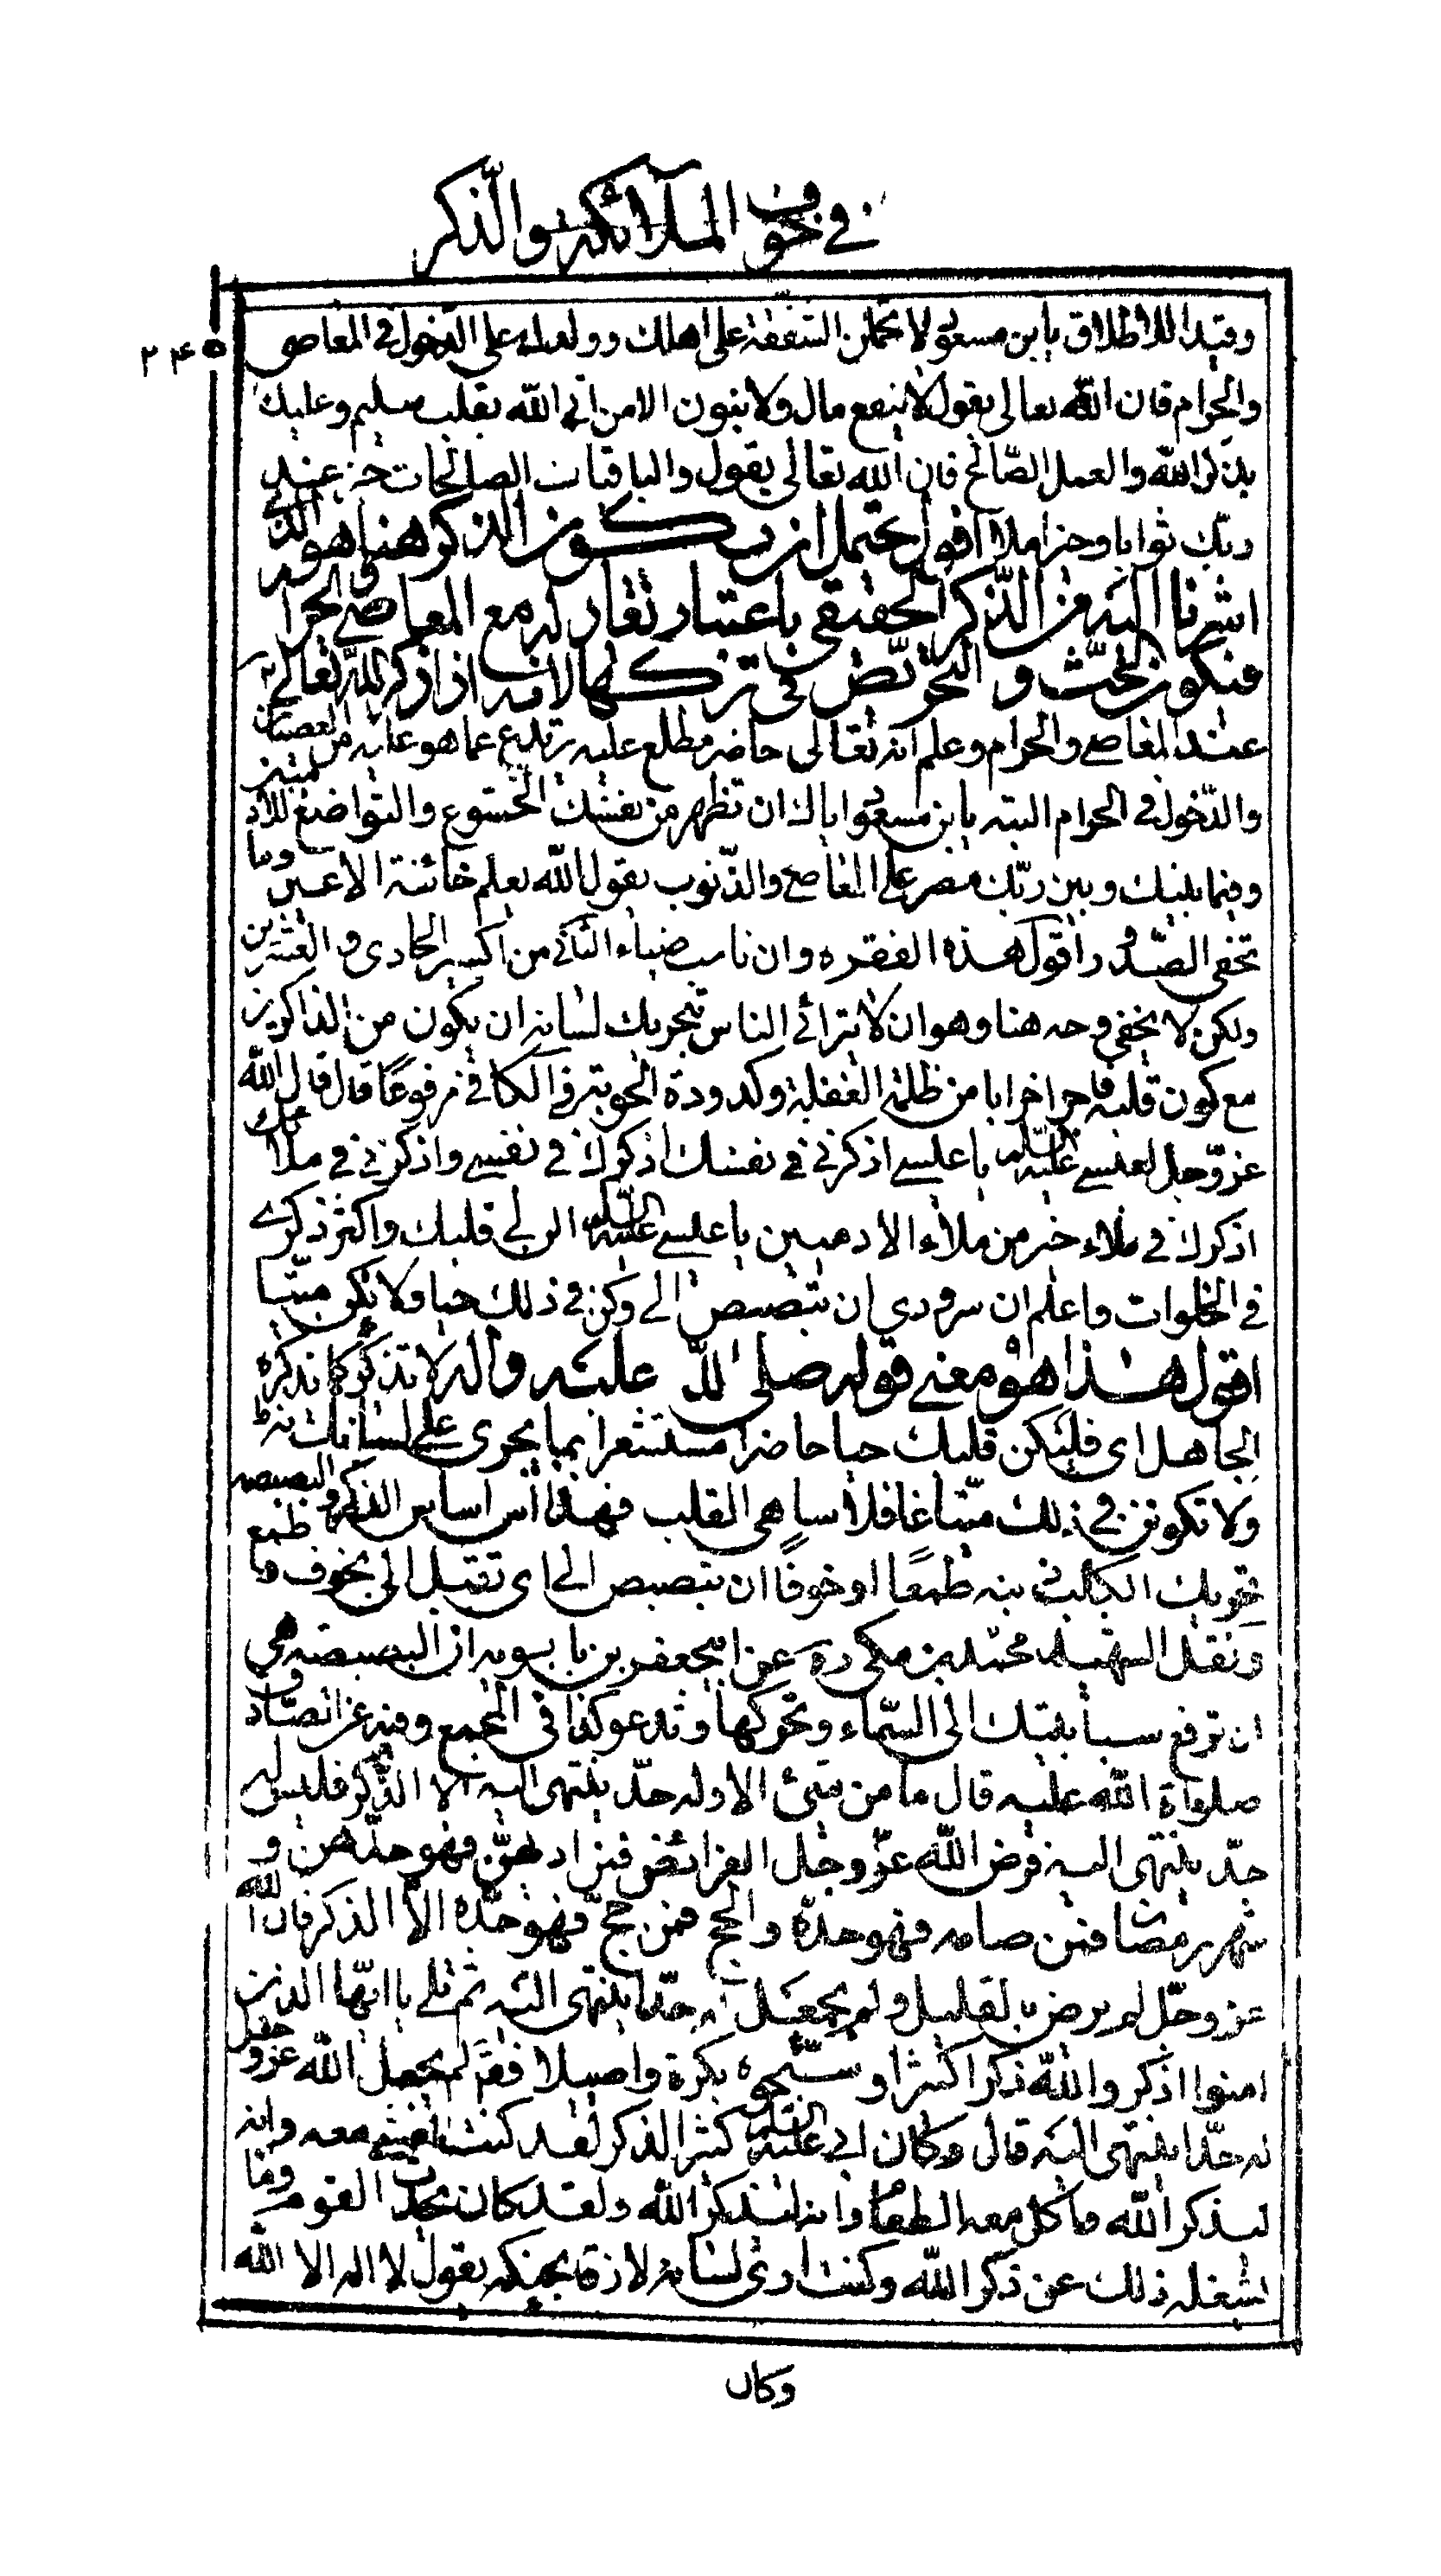 في خوف الملآئكه والذكر
٢٤٥
وقيد الاطلاق يابن مسعود لا تحملن الشفقة على اهلك وولدك على الدخول في المعاصي
والحرام فان الله تعالى يقول لا ينفع مال ولا بنون الا من اتى الله بقلب سليم وعليك
بذكر الله والعمل الصالح فان الله تعالى يقول والباقيات الصالحات خير عند
ربك ثوابا وخير املا اقول يحتمل ان يكون الذكر هنا هو الذي
اشرنا اليه من الذكر الحقيقي باعتبار تقارنه مع المعاصي والحرام
فيكون الحث و التحريض في تركهما لانه اذا ذكر الله تعالى
عند المعاصي والحرام وعلم انه تعالى حاضر مطلع عليه يرتدع عما هو عليه من العصيان
والدخول في الحرام البتة يابن مسعود اياك ان تظهر من نفسك الخشوع والتواضع للادميين
وفيما بينك وبين ربك مصر على المعاصي والذنوب يقول الله يعلم خائنة الاعين وما
تخفي الصدور اقول هذه الفقره وان ناسب ضياء الثاني من اكسير الحادي والعشرين
ولكن لا يخفى وجه هنا وهو ان لا يترائى الناس بتحريك لسانه ان يكون من الذاكرين
مع كون قلبه فاجرا خرابا من ظلمة الغفلة وكدودة الحوبة في الكافي مرفوعًا قال قال الله
عز وجل لعيسى عليه السلم يا عيسى اذكرني في نفسك اذكرك في نفسي واذكرني في ملائك
اذكرك في ملاء خير من ملاء الادميين يا عيسى عليه السلم الن لي قلبك واكثر ذكري
في الخلوات واعلم ان سروري ان تبصبص الي وكن في ذلك حيا ولا تكن ميتا
اقول هذا هو معنى قوله صلى الله عليه واله لا تذكر كما تذكره
الجاهل اي فليكن قلبك حيا حاضرا مستشعرا بما يجري على لسانك به
ولا تكونن في ذلك ميتا غافلا ساهي القلب فهذا اس اساس الذكر والبصبصه
تحريك الكلب ذنبه طمعًا او خوفًا ان تبصبص الي اي تقبل الي بخوف وطمع
ونقل الشهيد محمد بن مكي ره عن ابيجعفر بن بابويه ان البصبصه هي
ان ترفع سبابتيك الى السماء وتحركهما وتدعو كذا في المجمع وفيه عن الصادق
صلواة الله عليه قال ما من شئ الا وله حد ينتهي اليه الا الذكر فليس له
حد ينتهي اليه فرض الله عز وجل الفرائض فمن اداهن فهو حدهن و
شهر رمضان فمن صامه فهو حده والحج فمن حج فهو حده الا الذكر فان الله
عز وجل لم يرض بالقليل ولم يجعل له حدا ينتهي اليه ثم تلى يا ايها الذين
امنوا اذكروا الله ذكرا كثيرا وسبحوه بكرة واصيلا فقر لم يجعل الله عز وجل
له حدا ينتهي اليه قال وكان ابي عليه السلم كثير الذكر لقد كنت امشي معه وانه
ليذكر الله واكل معه الطعام وانه ليذكر الله ولقد كان يحدث القوم وما
يشغله ذلك عن ذكر الله وكنت ارى لسانه لازقا بحنكه يقول لا اله الا الله
وكان